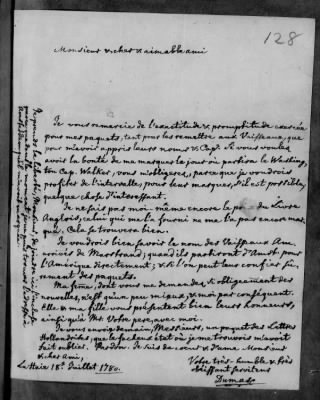 128
Monsieur & cher & aimable ami
Je vous remercie de l'exactitude & promptitude exercée
pour mes paquets, tant pour les remettre aux Vaisseaux, que
pour m'avoir appris leurs noms & Cap. Si vous voulez
avoir la bonté de me marquer le jour où partira le Washing-
ton Cap. Walker, vous m'obligerez, parce que je voudrois
profiter de l'intervalle, pour leur marquer, s'il est possible,
quelque chose d'intéressant.
Je ne sai pas moi-même encore le du Livre
Anglois, celui qui me l'a fourni ne me l'a pas encore mar-
qué. Cela se trouvera bien.
Je voudrois bien savoir le nom des Vaisseaux Am.
arrivés de quand ils partiront d'Amst. pour
l'Amérique directement; & si l'on peut leur confier sû-
rement des paquets.
Ma femme, dont vous me demandez si obligeamment des
nouvelles, n'est qu'un peu mieux, & moi par conséquent.
Elle & ma fille vous présentent bien leurs honneurs,
ainsi qu'à Mr. Votre pere, avec moi.
Je vous envoie demain, Messieurs, un paquet des Lettres
Hollandoises, que le facheux état où je me trouvois m'avoit
fait oublier. Pardon. Je suis de coeur & d'ame Monsieur
& cher Ami,
Votre très-humble & très
obéissant serviteur
Dumas
La Haie 18e. Juillet 1780.
Je prends la liberté, Monsieur, de joindre ici